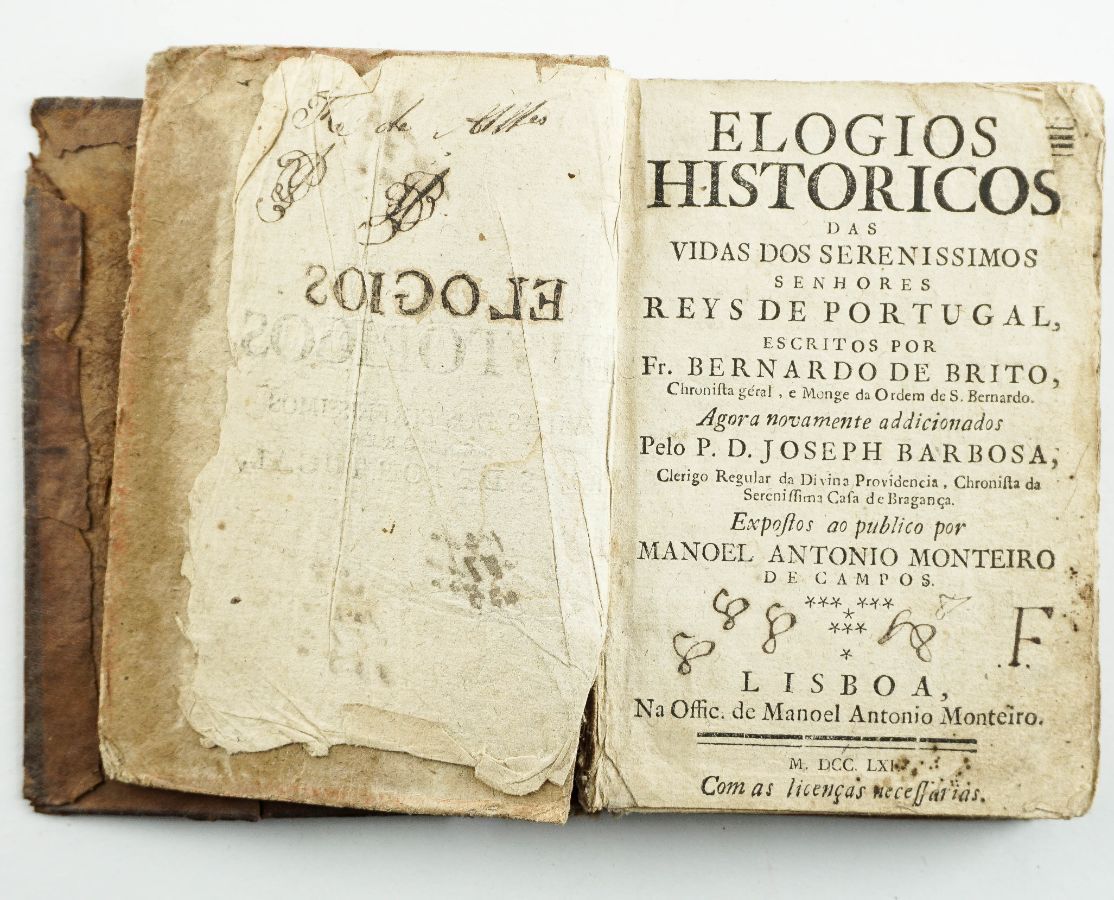 ELOGIOS
ELOGIOS
HISTORICOS
DAS
VIDAS DOS SERENISSIMOS
SENHORES
REYS DE PORTUGAL,
ESCRITOS POR
Fr. BERNARDO DE BRITO,
Chroniſta géral, e Monge da Ordem de S. Bernardo.
Agora novamente addicionados
Pelo P. D. JOSEPH BARBOSA,
Clerigo Regular da Divina Providencia, Chroniſta da
Sereniſſima Caſa de Bragança.
Expoſtos ao publico por
MANOEL ANTONIO MONTEIRO
DE CAMPOS.
*** ***
*
***
*
F
LISBOA,
Na Offic. de Manoel Antonio Monteiro.
M. DCC.
Com as licenças neceſſarias.